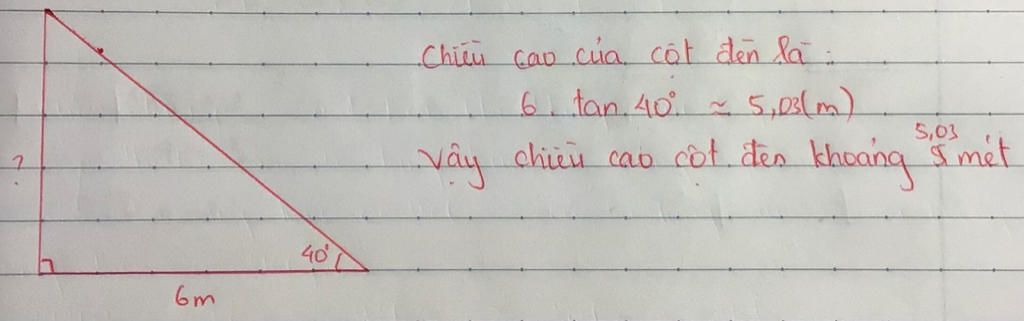 Chiều cao của cột đèn là :
6 . tan 40° ≈ 5,03(m)
5,03
Vậy chiều cao cột đèn khoảng mét
?
40°
6m